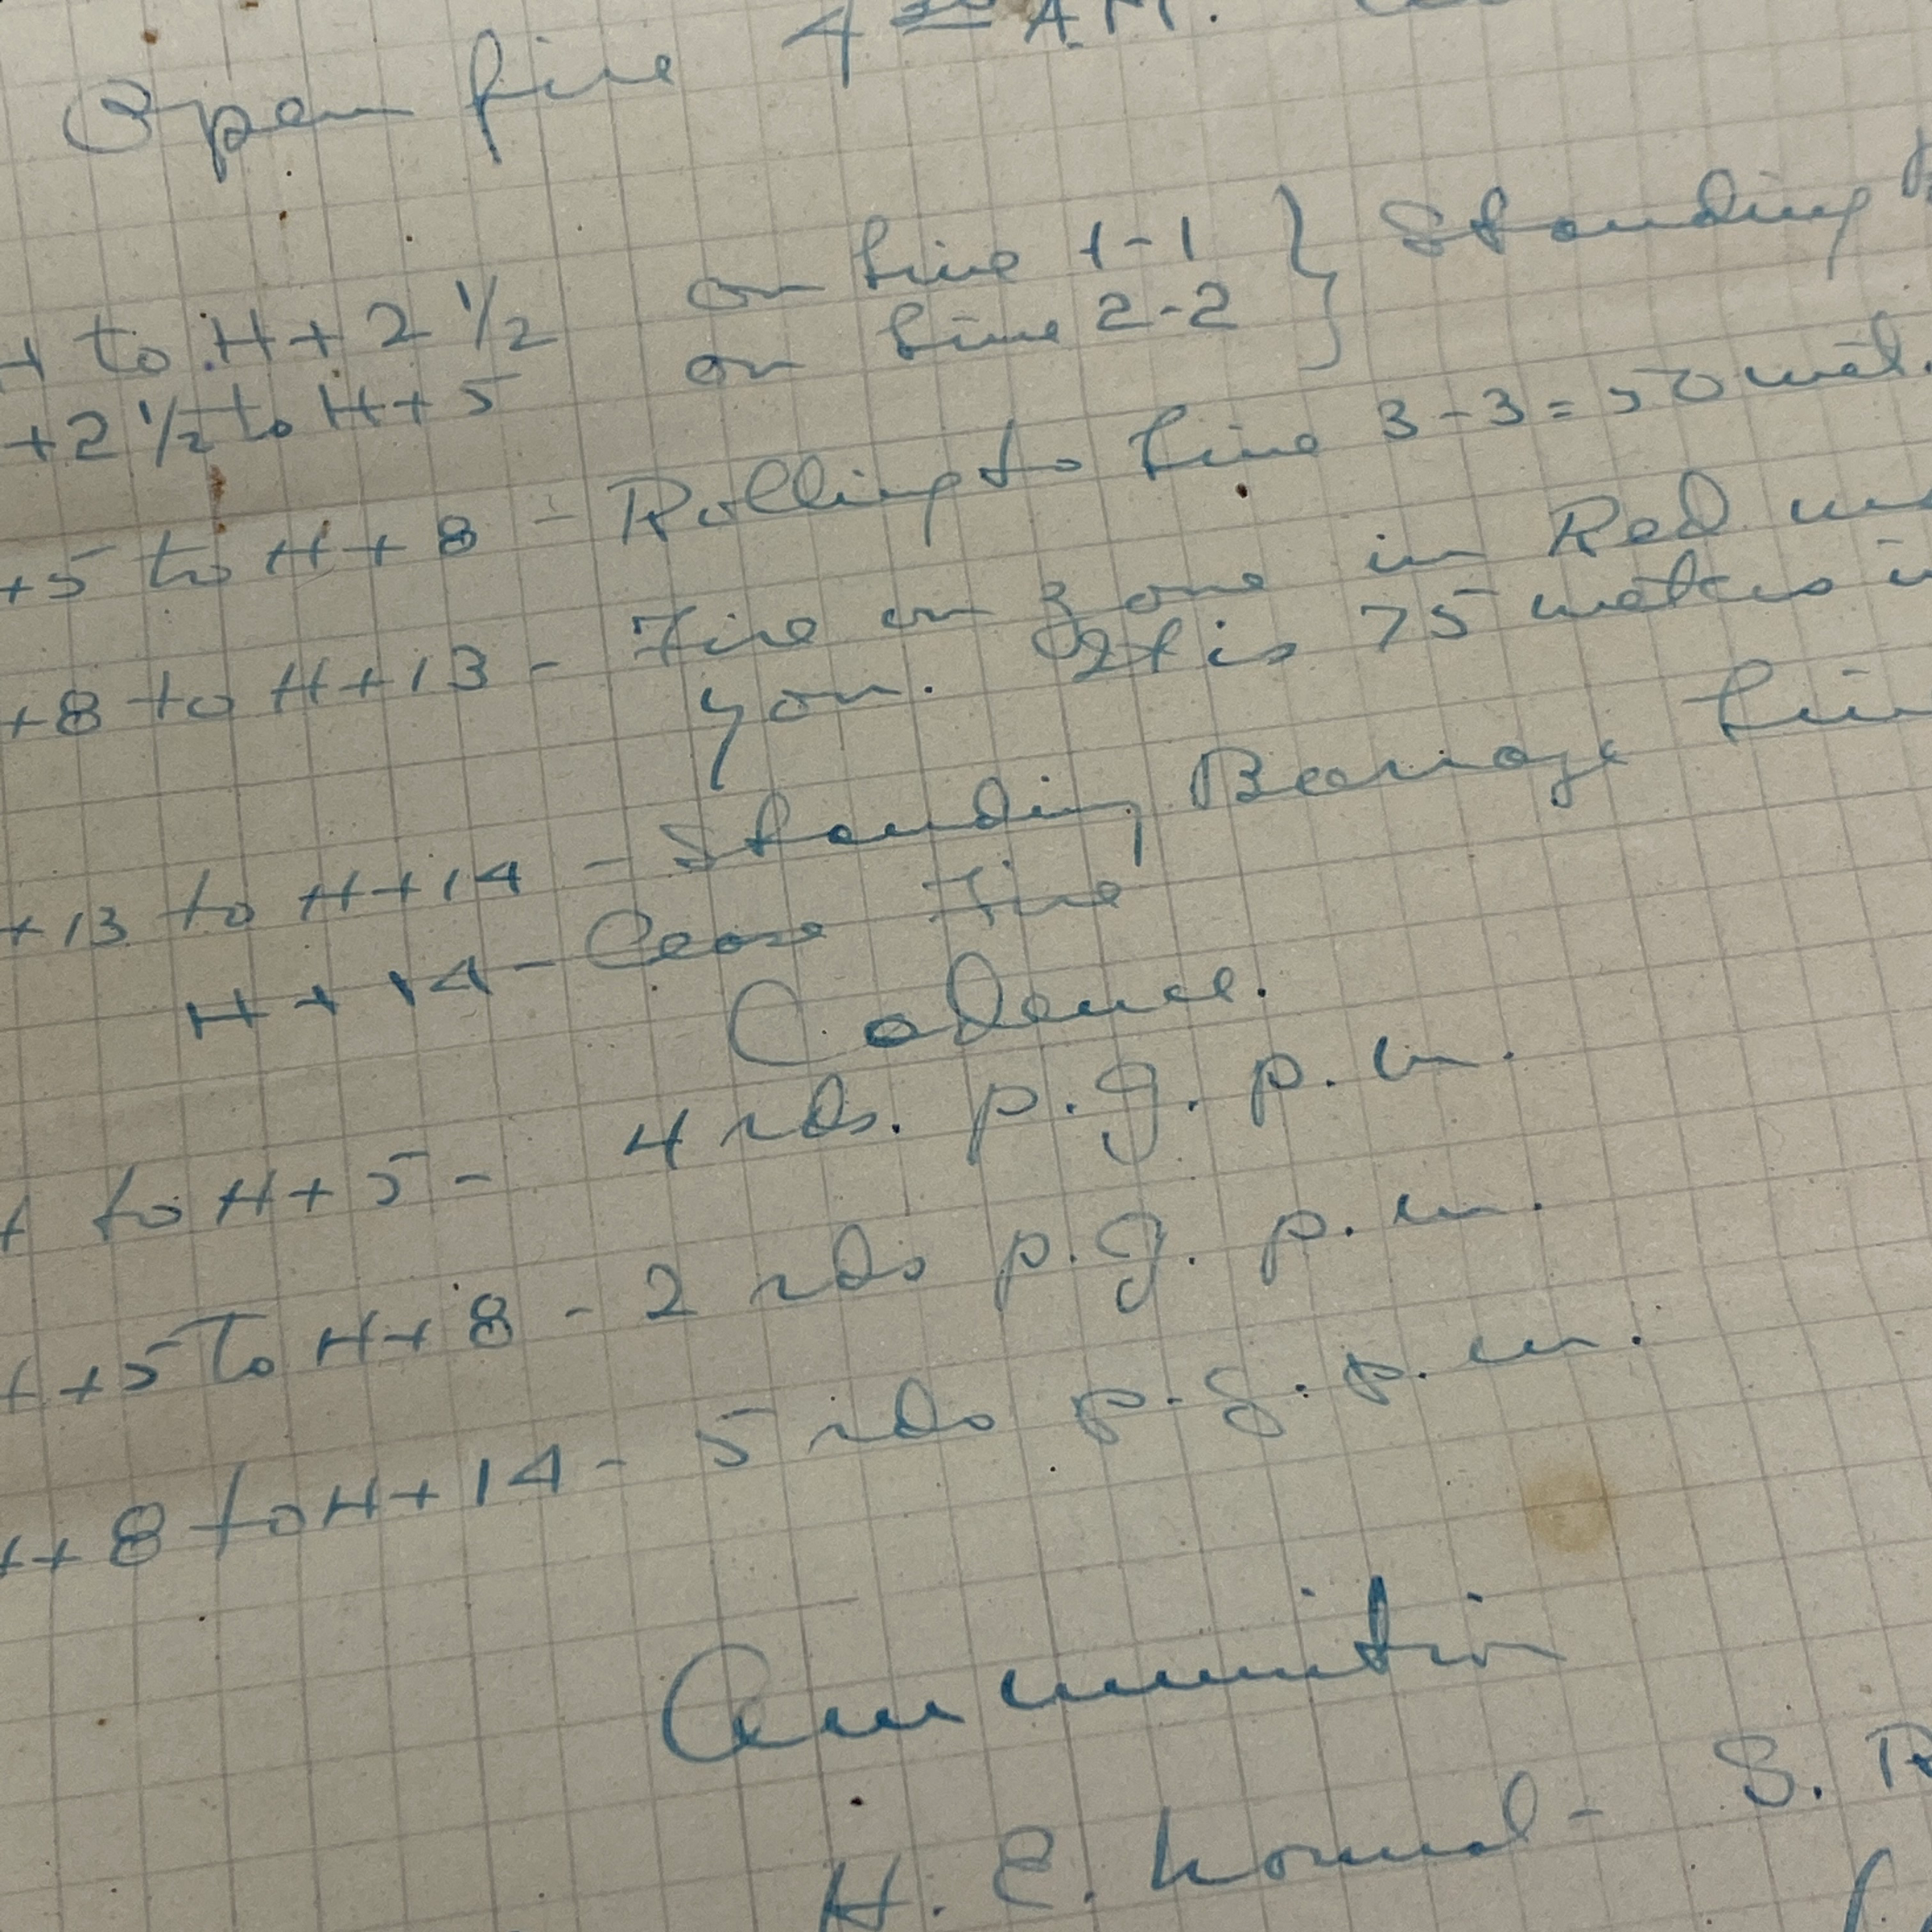 Open fire 4 30 A.M.
H to H + 2 1/2 on line 1-1 } Standing
+ 2 1/2 to H + 5 on line 2-2
+5 to H + 8 - Rolling to line 3-3 = 50 met.
+8 to H + 13 - Fire on zone in Red
you. It is 75 meters
+13 to H + 14 - Standing Barrage
H + 14 - Cease Fire
Cadence.
to H + 5 - 4 rds. p. g. p. m.
+5 to H + 8 - 2 rds p. g. p. m.
+8 to H + 14 - 5 rds p. g. p. m.
Ammunition
H. E. Normal - S. R